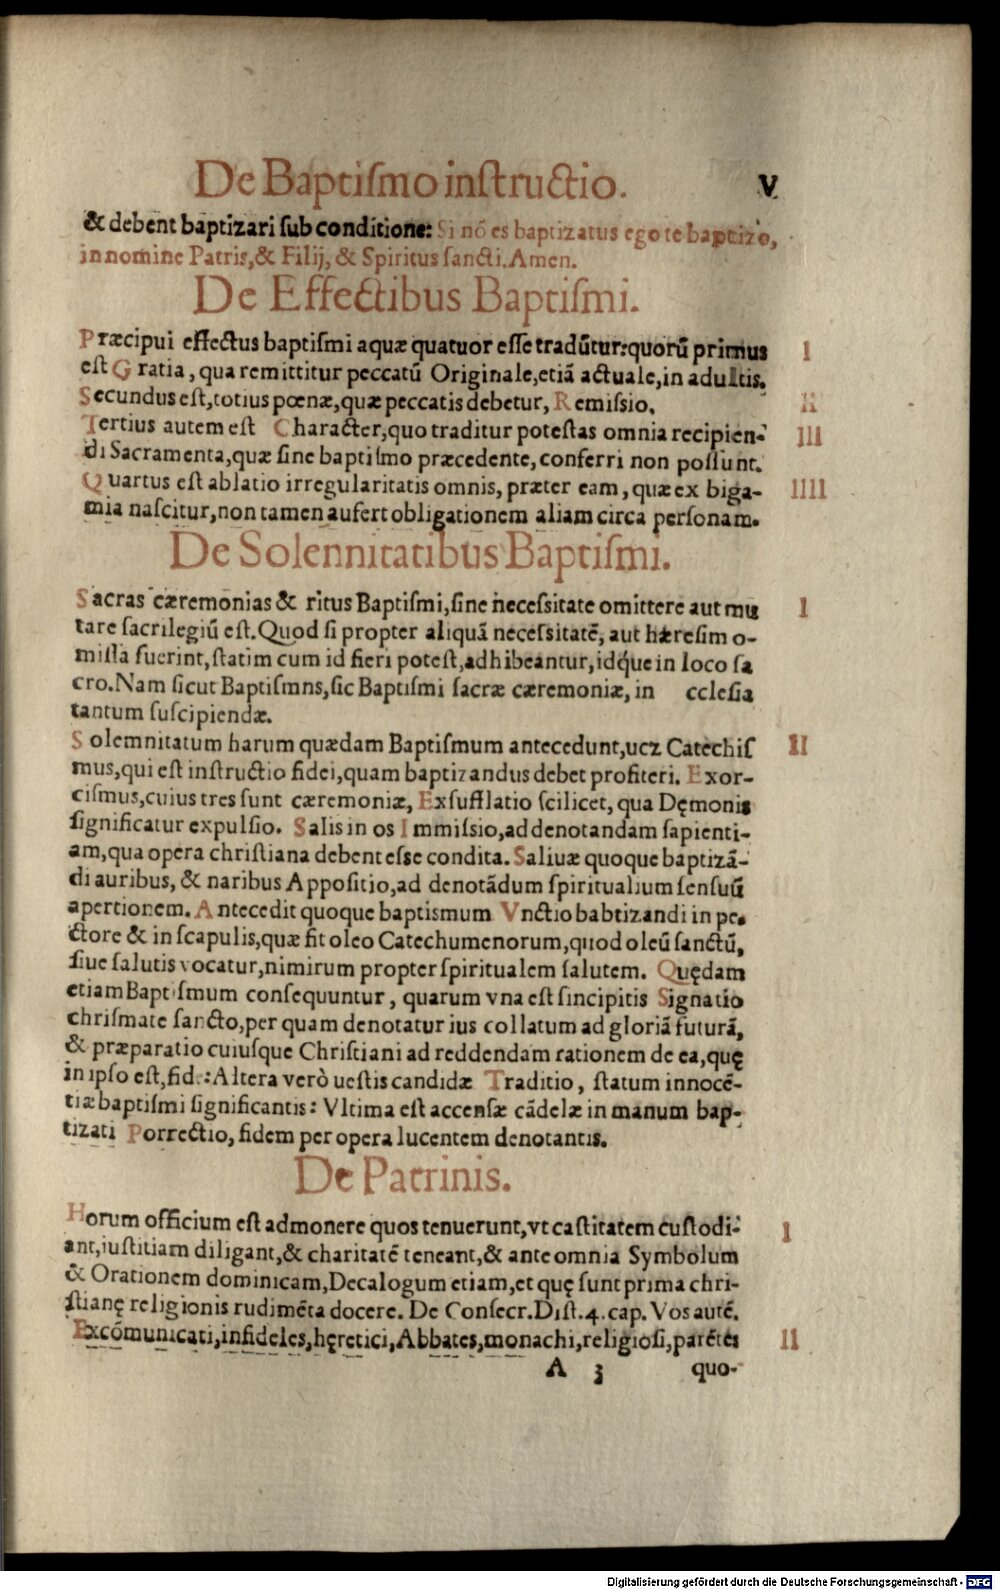 De Baptiſmo inſtructio. V
& debent baptizari ſub conditione: Si nō es baptizatus ego te baptizo,
in nomine Patris, & Filij, & Spiritus ſancti. Amen.
De Effectibus Baptiſmi.
Præcipui effectus baptiſmi aquæ quatuor eſſe tradūtur: quorū primus I
eſt Gratia, qua remittitur peccatū Originale, etiā actuale, in adultis.
Secundus eſt, totius pœnæ, quæ peccatis debetur, Remiſsio. II
Tertius autem eſt Character, quo traditur poteſtas omnia recipien- III
di Sacramenta, quæ ſine baptiſmo præcedente, conferri non poſſunt.
Quartus eſt ablatio irregularitatis omnis, præter eam, quæ ex biga- IIII
mia naſcitur, non tamen aufert obligationem aliam circa perſonam.
De Solennitatibus Baptiſmi.
Sacras cæremonias & ritus Baptiſmi, ſine neceſsitate omittere aut mu I
tare ſacrilegiū eſt. Quod ſi propter aliquā neceſsitatē, aut hæreſim o-
miſſa fuerint, ſtatim cum id fieri poteſt, adhibeantur, idq́ue in loco ſa
cro. Nam ſicut Baptiſmns, ſic Baptiſmi ſacræ cæremoniæ, in eccleſia
tantum ſuſcipiendæ.
Solemnitatum harum quædam Baptiſmum antecedunt, ucz Catechiſ II
mus, qui eſt inſtructio fidei, quam baptizandus debet profiteri. Exor-
ciſmus, cuius tres ſunt cæremoniæ, Exſufflatio ſcilicet, qua Dęmonis
ſignificatur expulſio. Salis in os Immiſsio, ad denotandam ſapienti-
am, qua opera chriſtiana debent esse condita. Saliuæ quoque baptizā-
di auribus, & naribus Appoſitio, ad denotādum ſpiritualium ſenſuū
apertionem. Antecedit quoque baptismum Vnctio babtizandi in pe-
ctore & in ſcapulis, quæ fit oleo Catechumenorum, quod oleū ſanctū,
ſiue ſalutis vocatur, nimirum propter ſpiritualem ſalutem. Quędam
etiam Baptiſmum conſequuntur, quarum vna eſt ſincipitis Signatio
chriſmate ſancto, per quam denotatur ius collatum ad gloriā futurā,
& præparatio cuiuſque Chriſtiani ad reddendam rationem de ea, quę
in ipſo eſt, fide: Altera verò ueſtis candidæ Traditio, ſtatum innocē-
tiæ baptiſmi ſignificantis: Vltima eſt accenſæ cādelæ in manum bap-
tizati Porrectio, fidem per opera lucentem denotantis.
De Patrinis.
Horum officium eſt admonere quos tenuerunt, vt caſtitatem cuſtodi- I
ant, iuſtitiam diligant, & charitatē teneant, & ante omnia Symbolum
& Orationem dominicam, Decalogum etiam, et quę ſunt prima chri-
ſtianę religionis rudimēta docere. De Conſecr. Diſt. 4. cap. Vos autē.
Excōmunicati, infideles, hęretici, Abbates, monachi, religioſi, parētes II
A 3 quo-
Digitalisierung gefördert durch die Deutsche Forschungsgemeinschaft - DFG